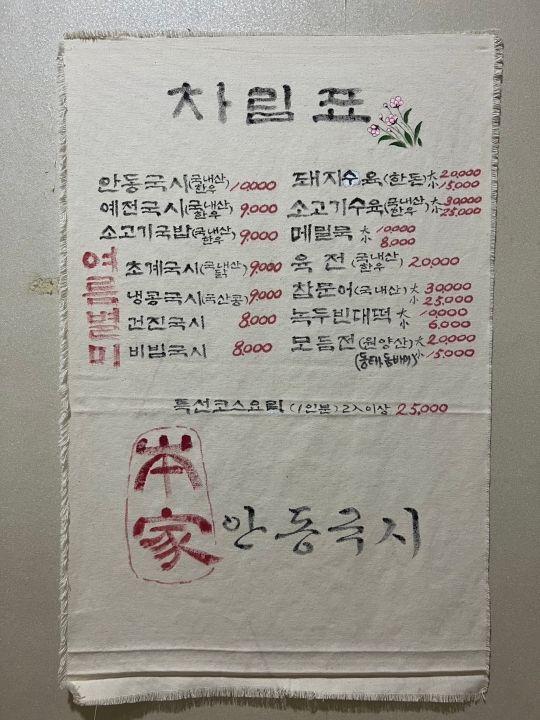 차림표
안동국시(국내산 한우) 10,000
예전국시(국내산 한우) 9,000
소고기국밥(국내산 한우) 9,000
여름별미
초계국시(국내산 닭) 9,000
냉콩국시(국산콩) 9,000
건진국시 8,000
비빔국시 8,000
돼지수육(한돈) 大 20,000 小 15,000
소고기수육(국내산 한우) 大 30,000 小 25,000
메밀묵 大 10,000 小 8,000
육전(국내산 한우) 20,000
참문어(국내산) 大 30,000 小 25,000
녹두빈대떡 大 10,000 小 6,000
모듬전(원양산) 大 20,000 小 15,000
(동태,동바위)
특선코스요리 (1인분) 2人이상 25,000
本家 안동국시